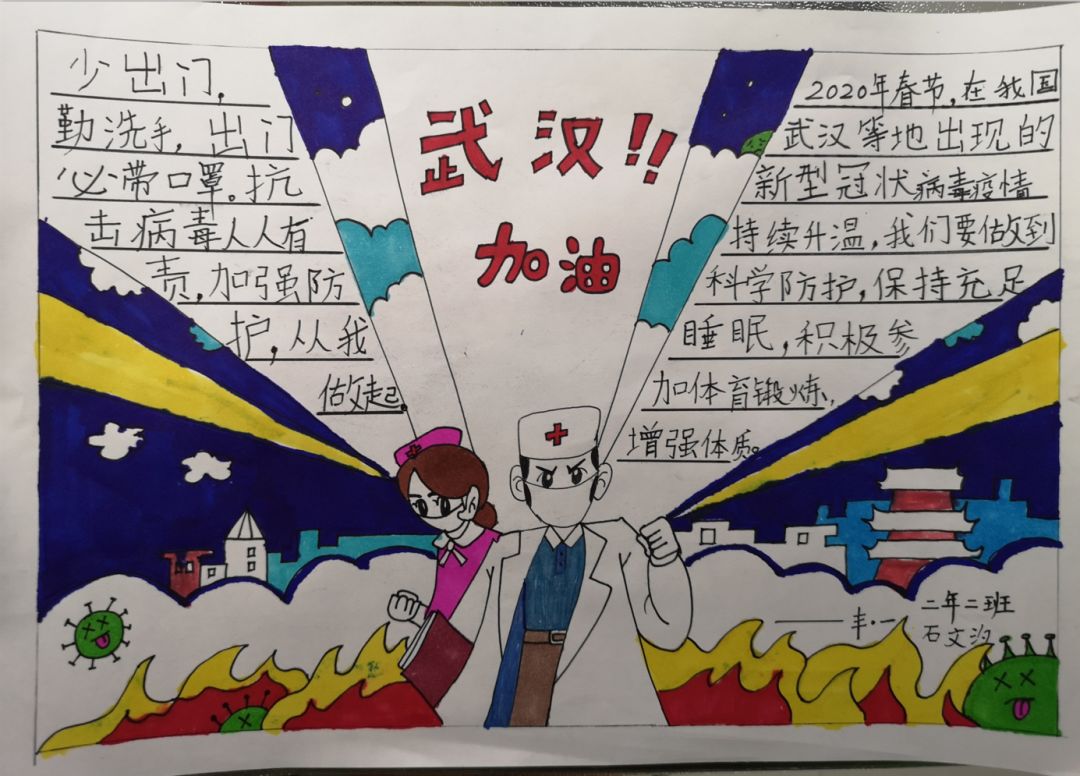 武汉!!
加油
少出门,
勤洗手,出门
必带口罩。抗
击病毒人人有
责,加强防
护,从我
做起。
2020年春节,在我国
武汉等地出现的
新型冠状病毒疫情
持续升温,我们要做到
科学防护,保持充足
睡眠,积极参
加体育锻炼,
增强体质。
——丰·一
二年二班
石文